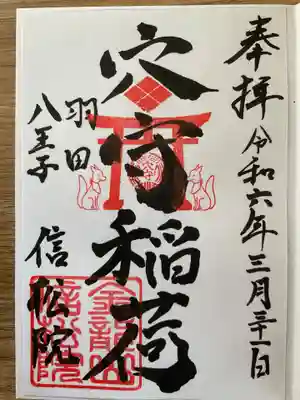 奉拝 令和六年三月三十一日
穴守稲荷
羽田
八王子 信松院
金龍山
信松院